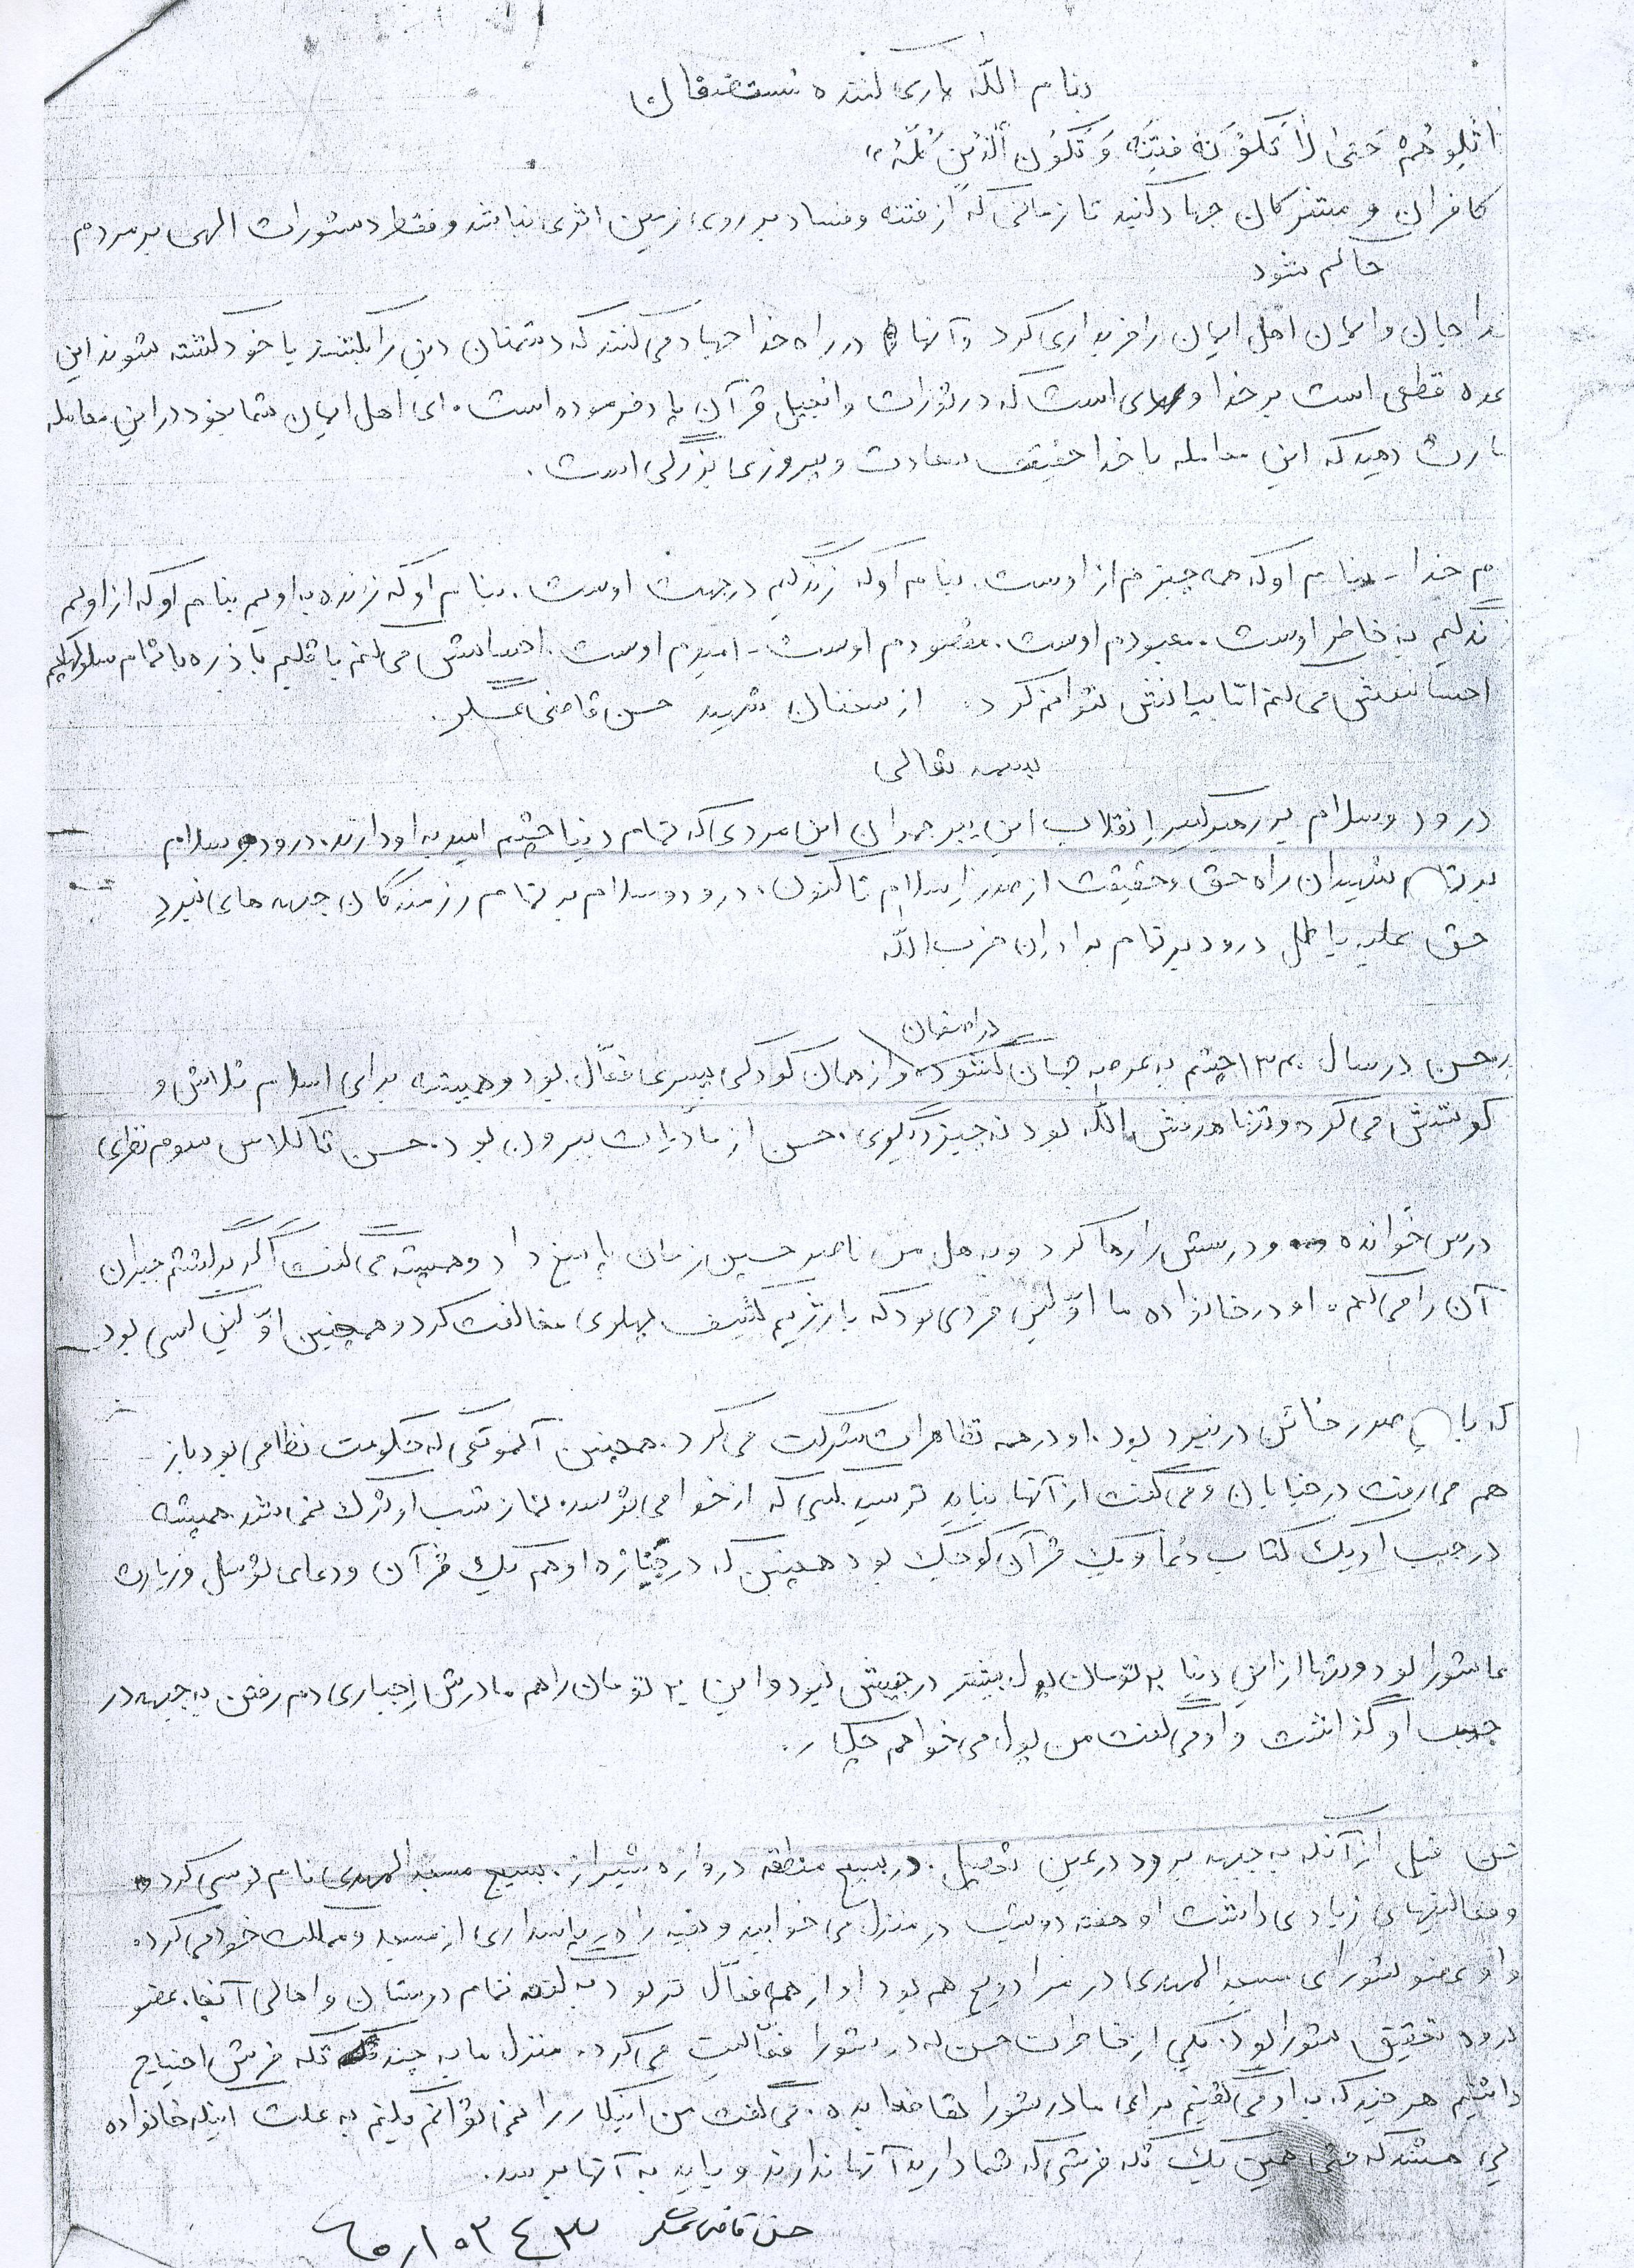 بنام اللّه یاری کننده مستضعفان
اتلوهُم حَتیٰ لاٰ تَکُوْنَ فِتنَه وَ تَکُوُن اَلّدیٖن لِلّه»
کافران و مشرکان جهاد کنید تا زمانی که از فتنه و فساد بر روی زمین اثری نباشد و فقط دستورات الهی بر مردم
حاکم شود
خدا جان و ایمان اهل ایمان را خریداری کرد و آنها در راه خدا جهاد می کنند که دشمنان دین را بکشند یا خود کشته شوند این
عده قطعی است بر خدا و است که در تورات و انجیل قرآن یاد فرموده است. ای اهل ایمان شما بخود در این معامله
بارت دهید که این معامله با خدا حقیقت سعادت و پیروزی بزرگی است.
م خدا - بنام او که همه چیزم از اوست. بنام او که زندگیم در جهت اوست. بنام او که زنده به اویم بنام او که از اویم
ندگیم به خاطر اوست. معبودم اوست. مقصودم اوست - امیدم اوست. احساسش می کنم با قلبم با ذره با تمام سلولهایم
احساسش می کنم اما بیانش نتوانم کرد. از سخنان شهید حسن قاضی عسگر.
بسمه تعالی
درود و سلام بر رهبر کبیر انقلاب این پیر جماران این مردی که تمام دنیا چشم امید به او دارند. درود و سلام
بر تمام شهیدان راه حق و حقیقت از صدر اسلام تا کنون. درود و سلام بر تمام رزمندگان جبهه های نبرد
حق علیه باطل درود بر تمام برادران حزب اللّه
حسن در سال ۱۳۴۰ چشم به عرصه جهان گشود در اصفهان و از همان کودکی پسری فعّال بود و همیشه برای اسلام تلاش و
کوشش می کرد و تنها هدفش اللّه بود نه چیز دیگری. حسن از مادیات بیرون بود. حسن تا کلاس سوم نظری
درس خوانده و درسش را رها کرد و به هل من ناصر حسین زمان پاسخ داد و همیشه می گفت اگر برگشتم جبران
آن را می کنم. او در خانواده ما اوّلین فردی بود که با رژیم کثیف پهلوی مخالفت کرد و همچنین اوّلین کسی بود
که با صدر خائن در نبرد بود. او در همه تظاهرات شرکت می کرد. همچنین آنموقعی که حکومت نظامی بود باز
هم می رفت در خیابان و می گفت از آنها نباید ترسید کسی که از خدا می ترسد. نماز شب او ترک نمی شد. همیشه
در جیب او یک کتاب دعا و یک قرآن کوچک بود همچنین که در جنازه او هم یک قرآن و دعای توسل و زیارت
عاشورا بود و تنها از این دنیا ۲۰ تومان پول بیشتر در جیبش نبود و این ۲۰ تومان را هم مادرش اجباری دم رفتن به جبهه در
جیب او گذاشت و او می گفت من پول می خواهم چکار.
حسن قبل از آنکه به جبهه برود در عین تحصیل. در بسیج منطقه دروازه شیراز. بسیج مسجد المهدی نام نویسی کرده
و فعالیتهای زیادی داشت او هفته دو شب در منزل می خوابید و بقیه را در پاسداری از مسجد و مملکت خود می کرد.
و او عضو شورای مسجد المهدی در مرداویج هم بود او از همه فعّال تر بود به گفته تمام دوستان و اهالی آنجا. عضو
گروه تحقیق شورا بود. یکی از خاطرات حسن که در شورا فعّالیت می کرد. منزل ما به چند تکه فرش احتیاج
داشتیم هر چند که به او می گفتیم برای ما در شورا تقاضا بده. می گفت من اینکار را نمی توانم بکنم به علت اینکه خانواده
یی هستند که حتی همین یک تکه فرشی که شما دارید آنها ندارند و باید به آنها برسد.
حسن قاضی عسگر